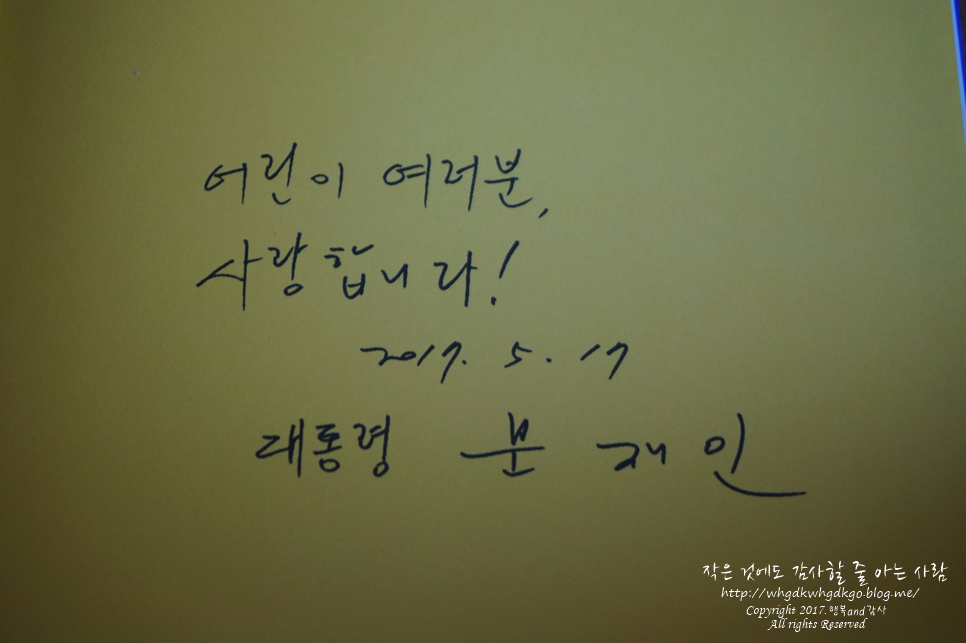 어린이 여러분,
사랑합니다!
2017. 5. 17
대통령 문재인
작은 것에도 감사할 줄 아는 사람
http://whgdkwhgdkgo.blog.me/
Copyright 2017.행복and감사
All rights Reserved